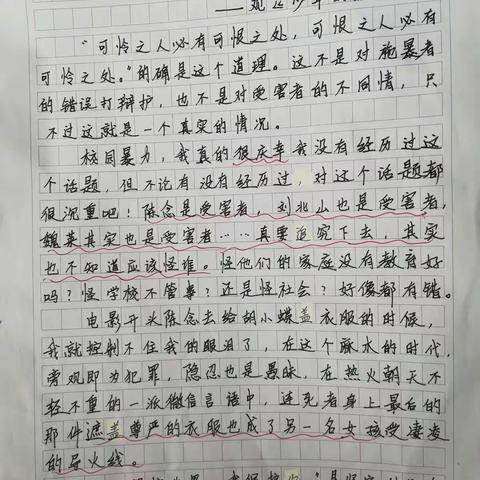 “可怜之人必有可恨之处，可恨之人必有
可怜之处。”的确是这个道理。这不是对施暴者
的错误打辩护，也不是对受害者的不同情，只
不过这就是一个真实的情况。
校园暴力，我真的很庆幸我没有经历过这
个话题，但不论有没有经历过，对这个话题都
很沉重吧！陈念是受害者，刘北山也是受害者，
魏莱其实也是受害者……真要追究下去，其实
也不知道应该怪谁。怪他们的家庭没有教育好
吗？怪学校不管事？还是怪社会？好像都有错。
电影开头陈念去给胡小蝶盖衣服的时候，
我就控制不住我的眼泪了，在这个
的时代，
旁观即为犯罪，隐忍也是愚昧，在热火朝天不
轻不重的一派微信言语中，逝死者身上最后的
那件遮盖尊严的衣服也成了另一名女孩受凄凌
的导火线。